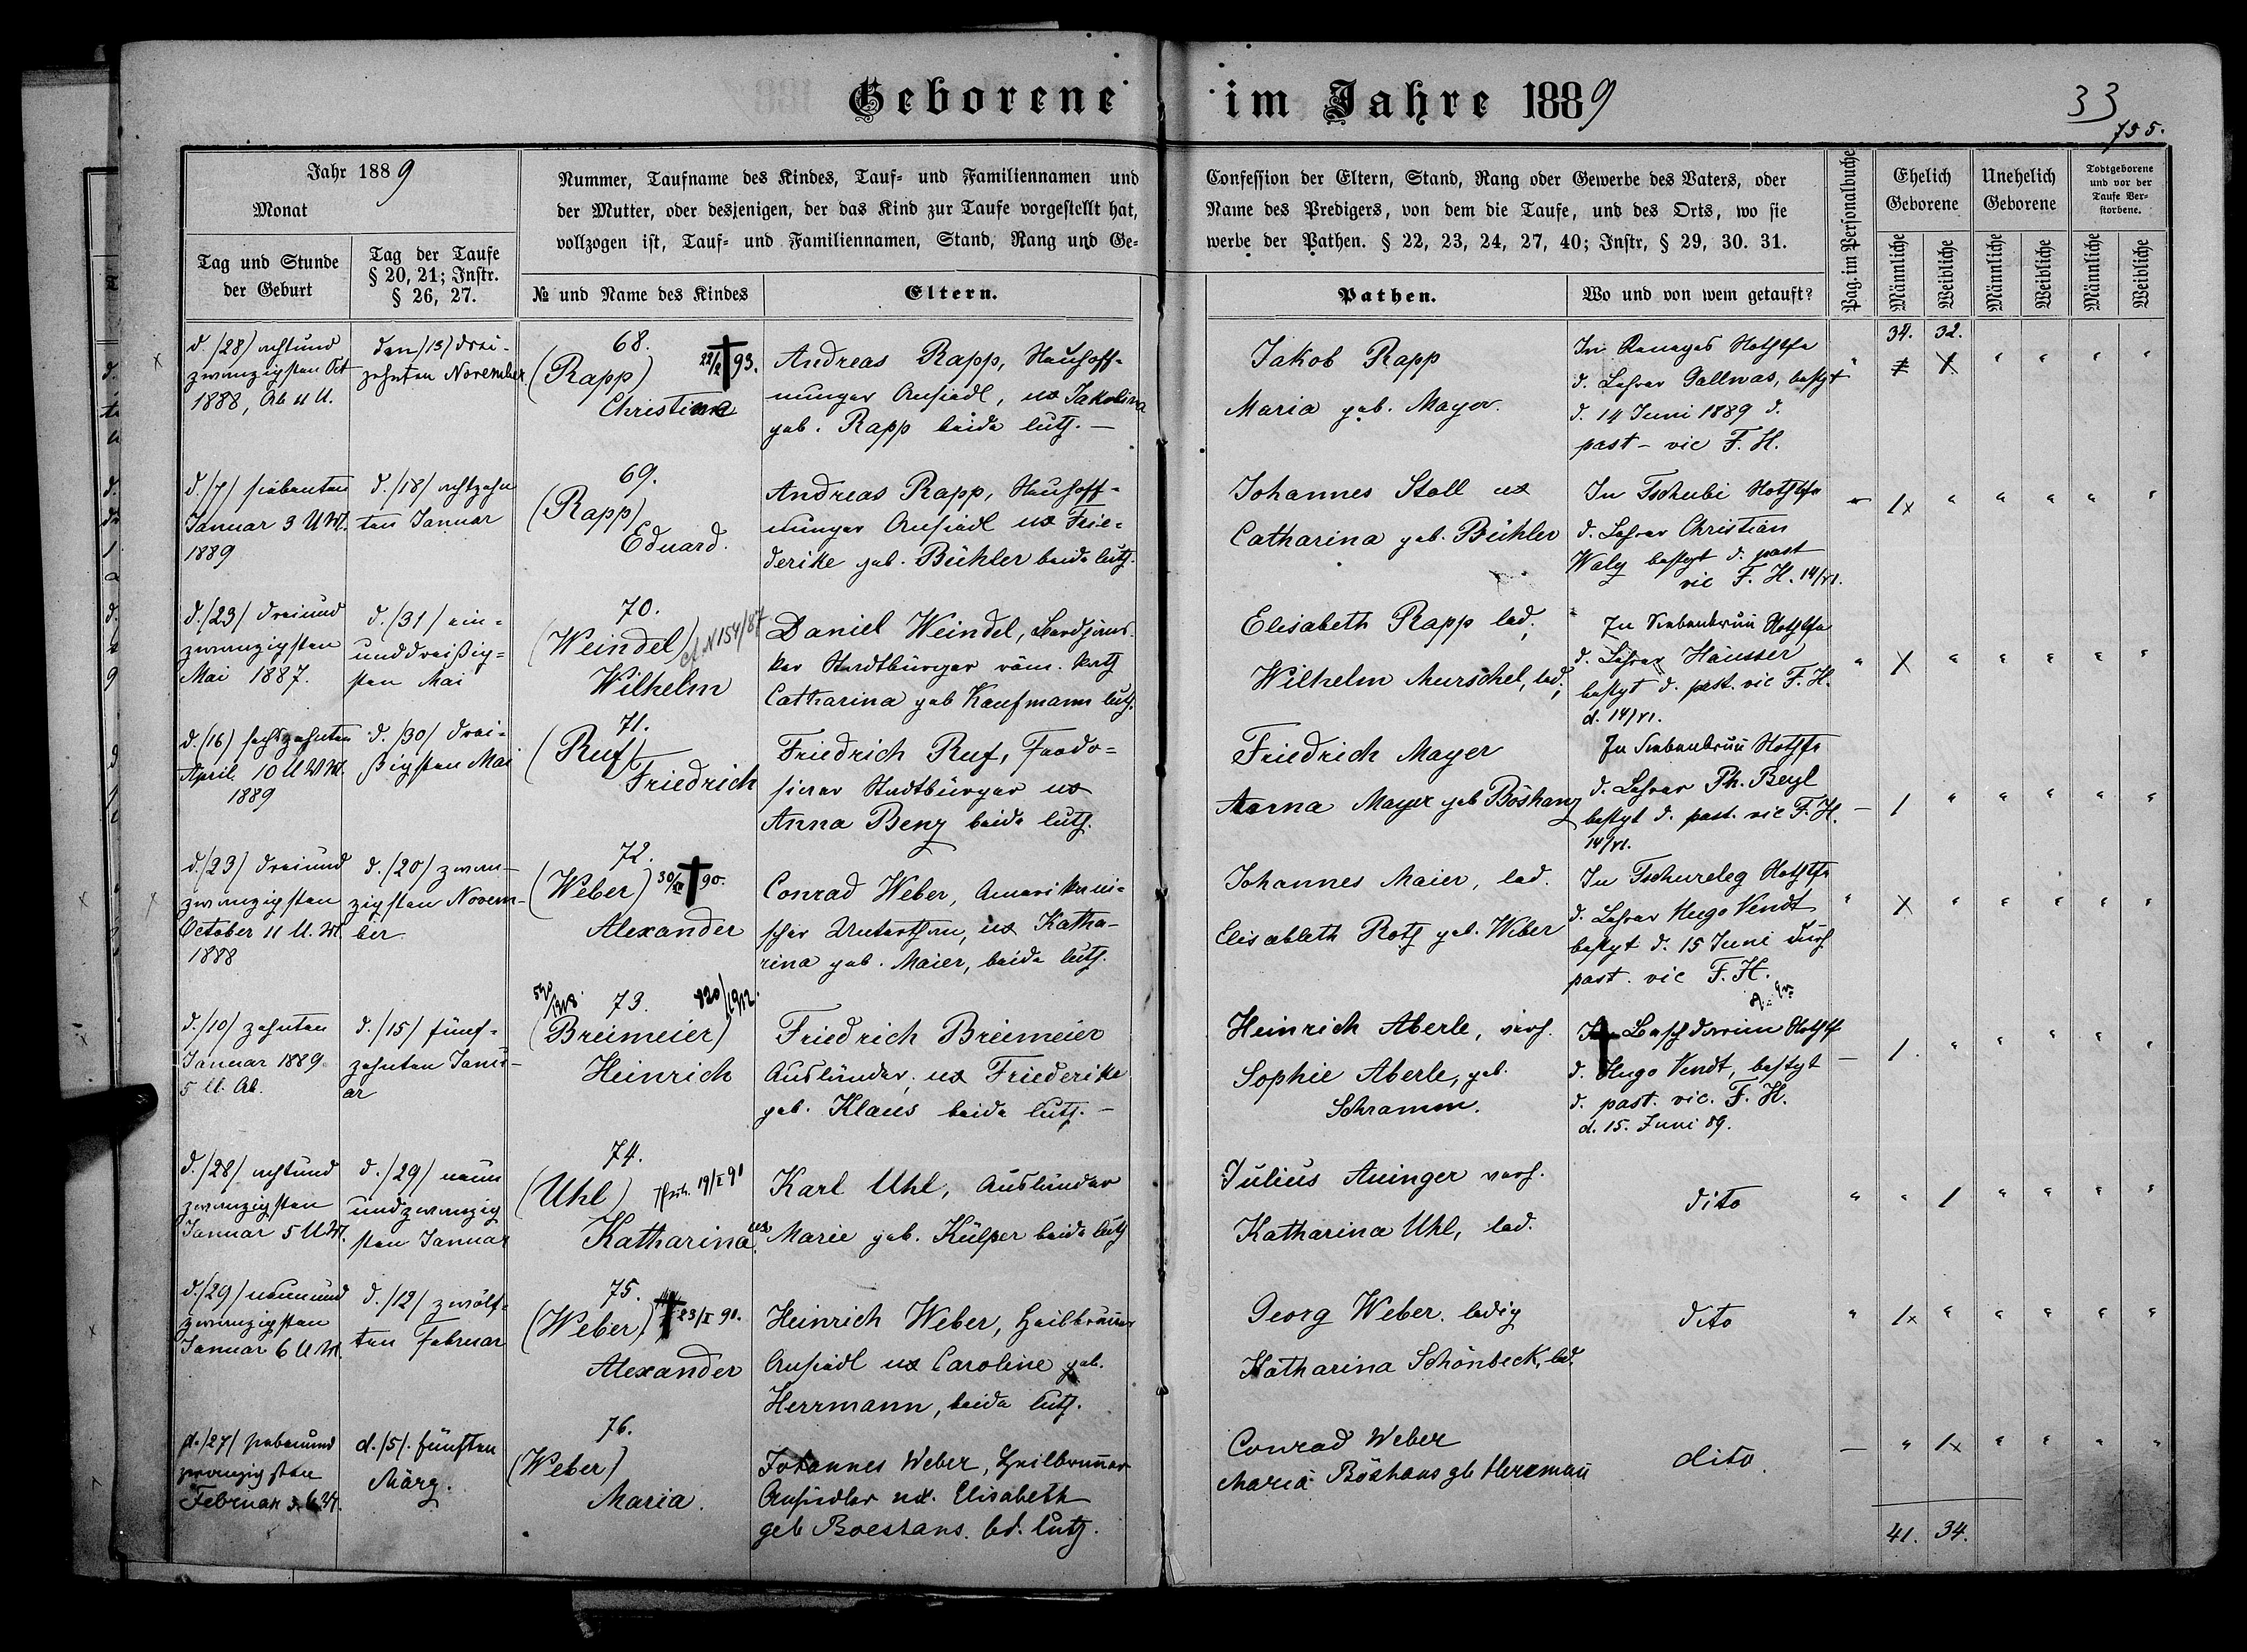 Geborene im Jahre 1889
33
755.
Jahr 1889
Monat
Tag und Stunde
der Geburt
Tag der Taufe
§ 20, 21; Instr.
§ 26, 27.
Nummer, Taufname des Kindes, Tauf- und Familiennamen und
der Mutter, oder desjenigen, der das Kind zur Taufe vorgestellt hat,
vollzogen ist, Tauf- und Familiennamen, Stand, Rang und Ge-
№ und Name des Kindes
Eltern.
Confession der Eltern, Stand, Rang oder Gewerbe des Vaters, oder
Name des Predigers, von dem die Taufe, und des Orts, wo sie
werbe der Pathen. § 22, 23, 24, 27, 40; Instr, § 29, 30. 31.
Pathen.
Wo und von wem getauft?
Pag. im Personalbuche
Ehelich
Geborene
Unehelich
Geborene
Todtgeborene
und vor der
Taufe Ver-
storbene.
Männliche
Weibliche
Männliche
Weibliche
Männliche
Weibliche
d. /28/ achtund
zwanzigsten Oct
1888, Ab 11 U.
den /13/ drei-
zehnten November
68.
(Rapp)
93.
Christina
Andreas Rapp, Hauhoff-
nungar Ansiedl, ux Jakobina
geb. Rapp beide luth. —
Jakob Rapp
Maria geb. Mayer.
In Hothtfe
d. Lehrer Gallwas, bestgt
d. 14 Juni 1889 d.
past- vic F. H.
34. 32.
d. /7/ siebenten
Januar 3 U M.
1889
d. /18/ achtzehn
ten Januar
69.
(Rapp)
Eduard.
Andreas Rapp, Hauhoff-
nungar Ansiedl ux Frie-
derike geb. Bühler beide luth.
Johannes Stoll ux
Catharina geb. Bühler
In Tschubi Hothtfe
d. Lehrer Christian
Waly bestgt d. past
vic F. H. 14/VI.
d. /23/ dreiund
zwanzigsten
Mai 1887.
d. /31/ ein-
unddreißig-
sten Mai
70.
(Weindel) cf. N 154/87
Wilhelm
Daniel Weindel, Berdjans-
ker Stadtbürger röm. kath
Catharina geb Kaufmann luth.
Elisabeth Rapp led.
Wilhelm Murschel, led.
In Siebenbrun Hothtfe
d. Lehrer Häusser
bestgt d. past. vic F. H.
d. 14/VI.
d. /16/ sechszehnten
April 10 U M.
1889
d. /30/ drei-
ßigsten Mai
71.
(Ruf)
Friedrich
Friedrich Ruf, Feodo-
sierer Stadtbürger ux
Anna Benz beide luth.
Friedrich Mayer
Mayer geb Böshanz
In Siebenbrun Hothtfe
d. Lehrer Ph. Beyl
bestgt d. past. vic F. H.
14/VI.
d. /23/ dreiund
zwanzigsten
October 11 U. M.
1888
d. /20/ zwan-
zigsten Novem-
ber
72.
(Weber) 90.
Alexander
Conrad Weber, Amerikani-
scher Unterthan, ux Katha-
rina geb. Maier, beide luth.
Johannes Maier, led.
Elisableth Roth geb. Weber
In Tschureleg Hothtfe
d. Lehrer Hugo Vendt
bestgt d. 15 Juni durch
past. vic F. H.
d. /10/ zehnten
Januar 1889
5 U. Ab.
d. /15/ fünf-
zehnten Janu-
ar
73.
(Breimeier)
Heinrich
Friedrich Breimeier
Ausländer, ux Friederike
geb. Klaus beide luth. —
Heinrich Aberle, verh.
Sophie Aberle, geb.
Schramm.
In Baschdorrim Hothtf
d. Hugo Vendt, bestgt
d. past. vic. F. H.
d. 15. Juni 89.
d. /28/ achtund
zwanzigsten
Januar 5 U M.
d. /29/ neun
undzwanzig
sten Januar
74.
(Uhl) 19/I 91
Katharina
Karl Uhl, Ausländer
ux Marie geb. Külper beide luth
Julius Aninger verh.
Katharina Uhl, led.
dito
d. /29/ neunund
zwanzigsten
Januar 6 U M.
d. /12/ zwölf-
ten Februar
75.
(Weber) 23/I 90.
Alexander
Heinrich Weber, Heilbrunner
Ansiedl ux Caroline geb.
Herrmann, beide luth.
Georg Weber. ledig
Katharina Schönbeck, led.
dito
d. /27/ siebenund
zwanzigsten
Februar
d. /5/. fünften
März.
76.
(Weber)
Maria.
Johannes Weber, Heilbrunner
Ansiedler ux. Elisabeth
geb Boeshans. bd. luth.
Conrad Weber
Maria Böshans gb Herrmann
dito.
41. 34.